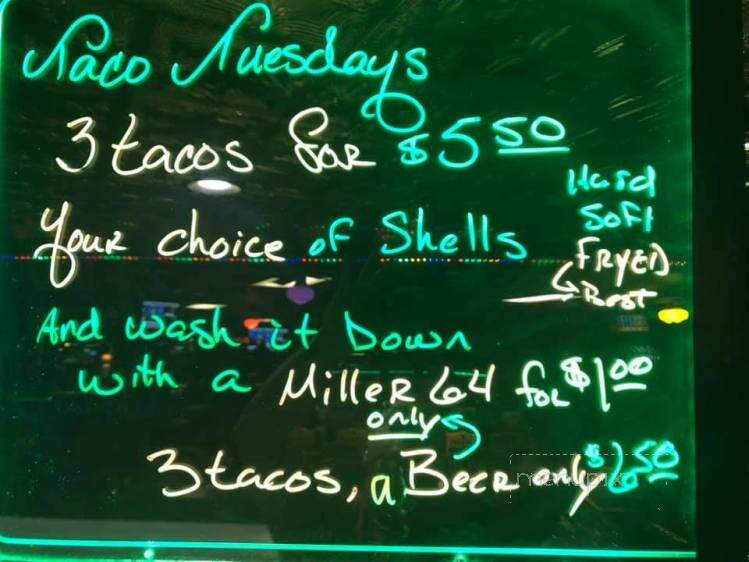 Taco Tuesdays
3 tacos for $5 50
Your choice of Shells
Hard
Soft
FRYED
Best
And wash it Down
with a Miller 64 for $1 00
only
3 tacos, a Beer only $6 50